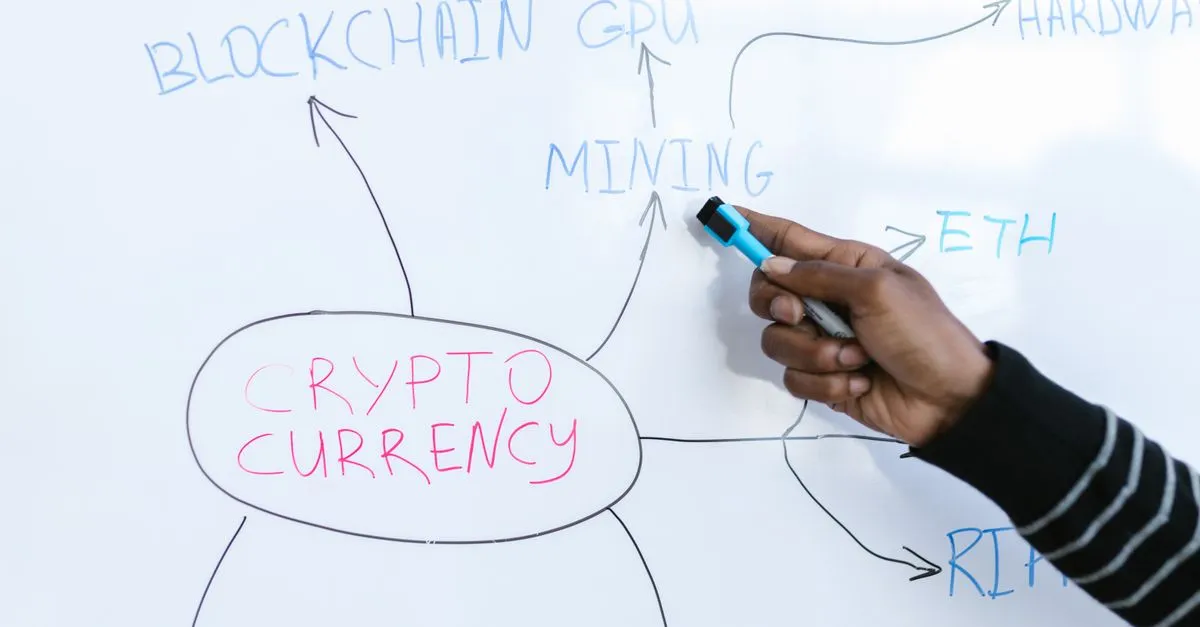 BLOCKCHAIN
GPU
MINING
ETH
CRYPTO
CURRENCY